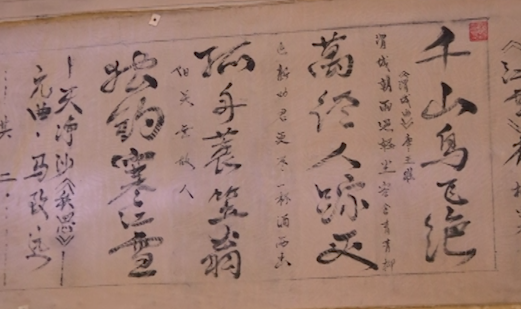 千山鸟飞绝
《渭城曲》唐 王維
渭城朝雨浥轻尘客舍青青柳
萬径人踪灭
色新劝君更尽一杯酒西出
孤舟蓑笠翁
阳关無故人
独钓寒江雪
天净沙《秋思》
元曲·马致远